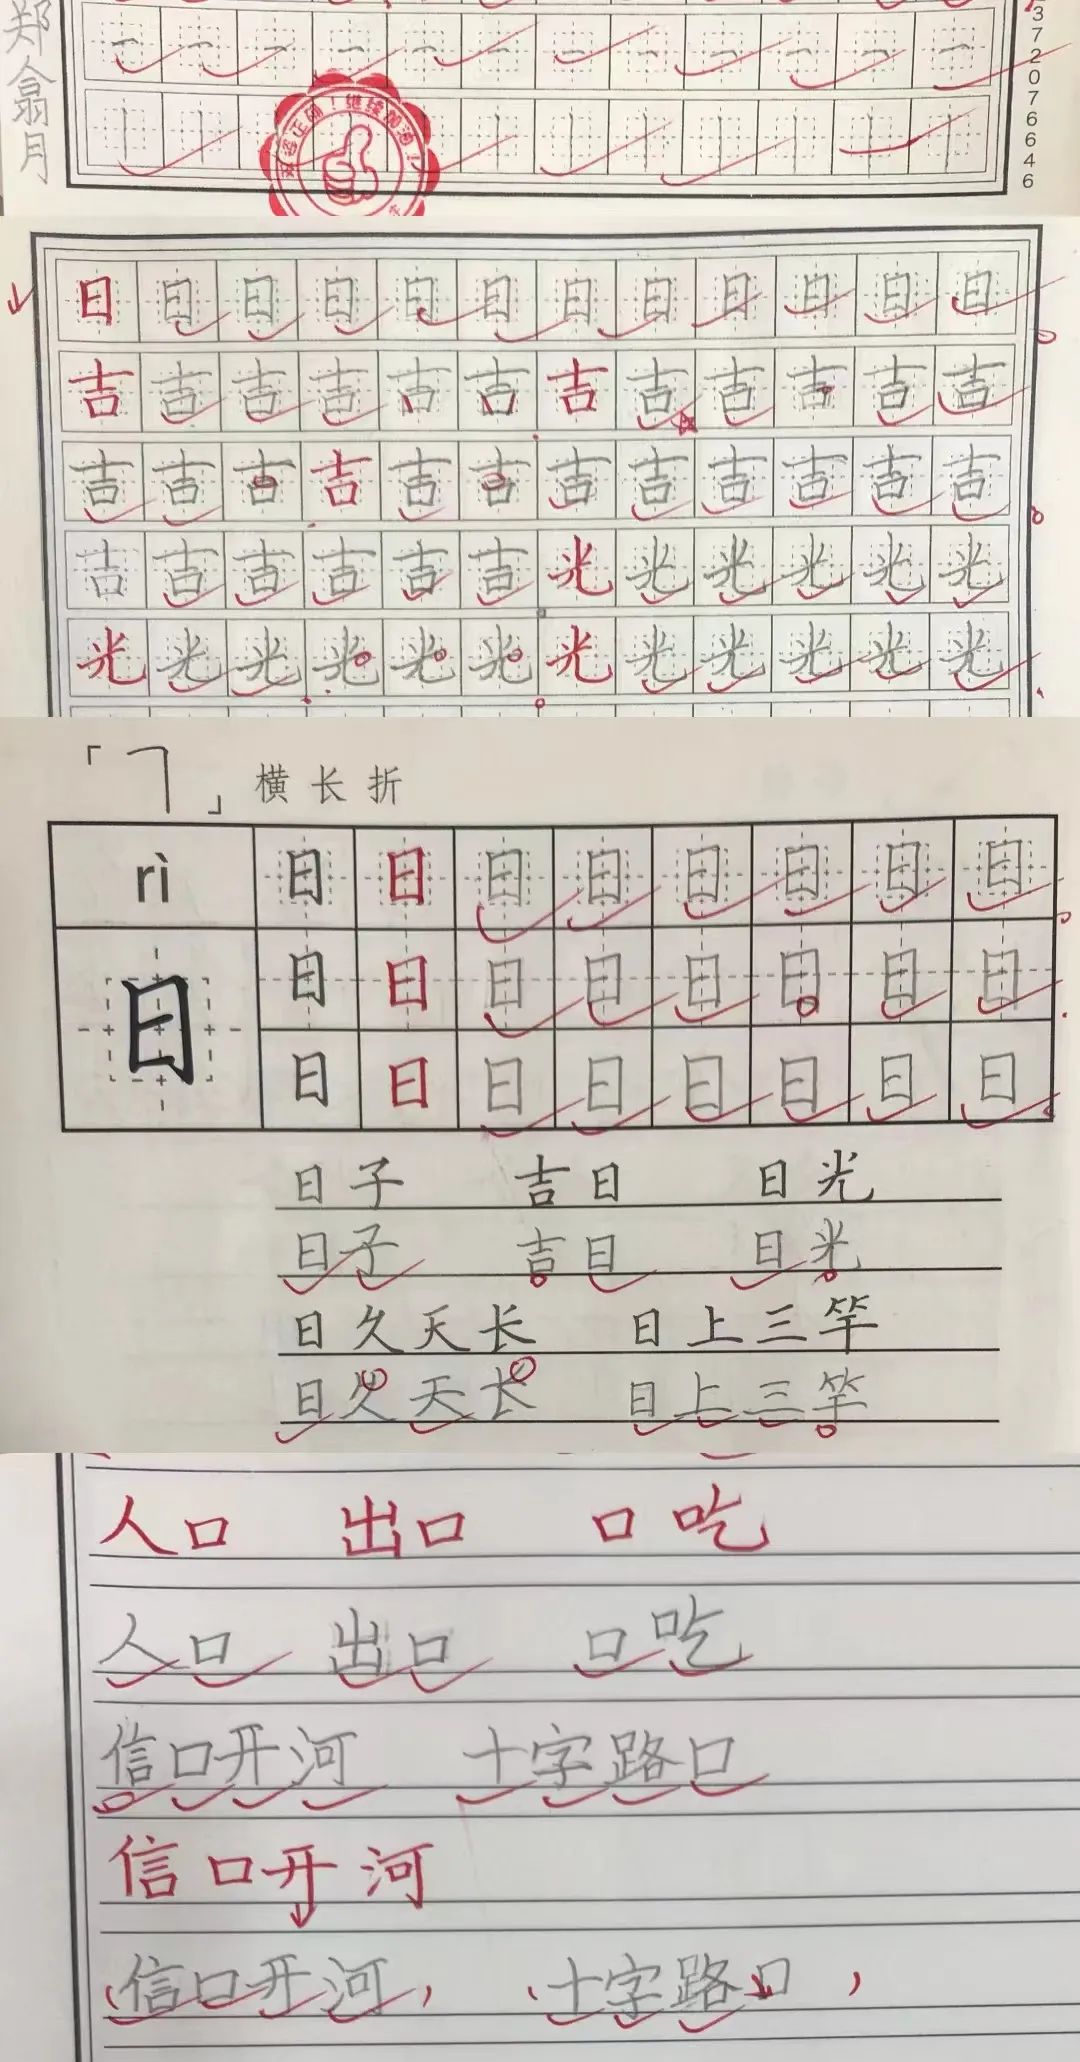 郑翕月
372076646
一 一 一 一 一 一 一 一 一 一 一 一
丨 丨 丨 丨 丨 丨 丨 丨 丨 丨
继续加油！
日 日 日 日 日 日 日 日 日 日 日 日
吉 吉 吉 吉 吉 吉 吉 吉 吉 吉 吉 吉
吉 吉 吉 吉 吉 吉 吉 吉 吉 吉 吉 吉
吉 吉 吉 吉 吉 吉 光 光 光 光 光 光
光 光 光 光 光 光 光 光 光 光 光 光
「㇕」 横长折
rì 日 日 日 日 日 日 日 日
日 日 日 日 日 日 日 日 日
日 日 日 日 日 日 日 日
日子 吉日 日光
日子 吉日 日光
日久天长 日上三竿
日久天长 日上三竿
人口 出口 口吃
人口 出口 口吃
信口开河 十字路口
信口开河
信口开河 十字路口